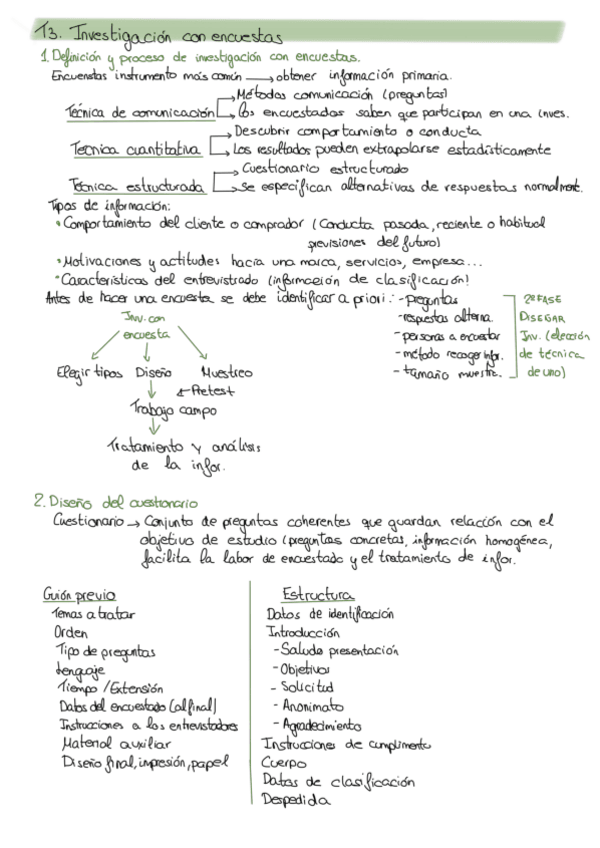 T3. Investigación con encuestas
1. Definición y proceso de investigación con encuestas.
Encuenstas instrumento más común → obtener información primaria.
→ Métodos comunicación (preguntas)
Técnica de comunicación → los encuestados saben que participan en una inves.
→ Descubrir comportamiento o conducta
Tecnica cuantitativa → Los resultados pueden extrapolarse estadísticamente
→ Cuestionario estructurado
Técnica estructurada → Se especifican alternativas de respuestas normalment.
Tipos de información:
• Comportamiento del cliente o comprador (Conducta pasada, reciente o habitual
previsiones del futuro)
• Motivaciones y actitudes hacia una marca, servicios, empresa...
• Características del entrevistado (información de clasificación)
Antes de hacer una encuesta se debe identificar a priori: - preguntas
- respuestas alterna.
- personas a encuestar
- método recoger infor.
- tamaño muestra.
2ª FASE
DISEÑAR
Inv. (elección
de técnica
de uno)
Inv. con
encuesta
Elegir tipos Diseño Muestreo
← Pretest
Trabajo campo
Tratamiento y análisis
de la infor.
2. Diseño del cuestionario
Cuestionario → Conjunto de preguntas coherentes que guardan relación con el
objetivo de estudio (preguntas concretas, información homogénea,
facilita la labor de encuestado y el tratamiento de infor.
Guión previo
Temas a tratar
Orden
Tipo de preguntas
Lenguaje
Tiempo / Extensión
Datos del encuestado (al final)
Instrucciones a los entrevistadores
Material auxiliar
Diseño final, impresión, papel
Estructura
Datos de identificación
Introducción
- Saludo presentación
- Objetivos
- Solicitud
- Anonimato
- Agradecimiento
Instrucciones de cumplimento
Cuerpo
Datos de clasificación
Despedida